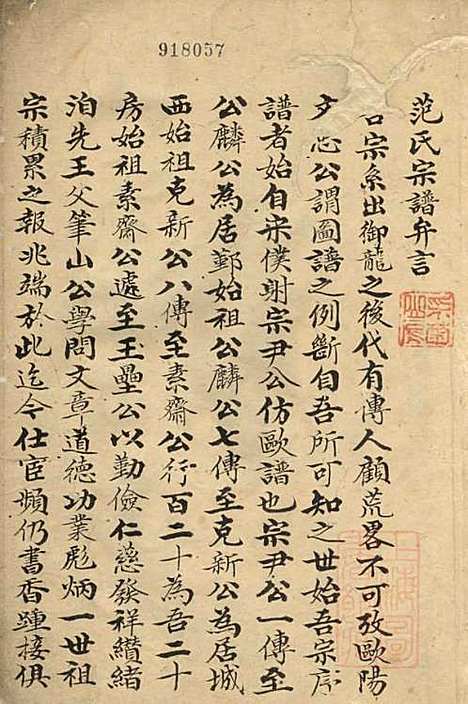 918057
范氏宗譜弁言
吾宗系出御龍之後代有傳人顧荒畧不可攷歐陽
文忠公謂圖譜之例斷自吾所可知之世始吾宗序
譜者始自宋僕射宗尹公仿歐譜也宗尹公一傳至
公麟公為居鄞始祖公麟公七傳至克新公為居城
西始祖克新公八傳至素齋公行百二十為吾二十
房始祖素齋公遞至王壘公以勤儉仁慈發祥纘緒
洎先王父筆山公學問文章道德功業彪炳一世祖
宗積累之報兆端於此迄今仕宦頻仍書香踵接俱